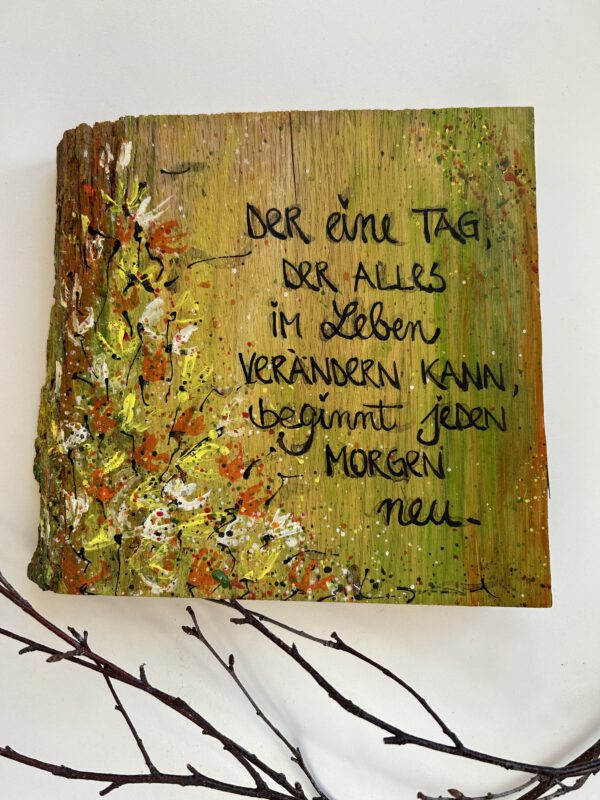 DER eine TAG,
DER ALLES
IM Leben
VERÄNDERN KANN,
beginnt jeden
MORGEN
neu.